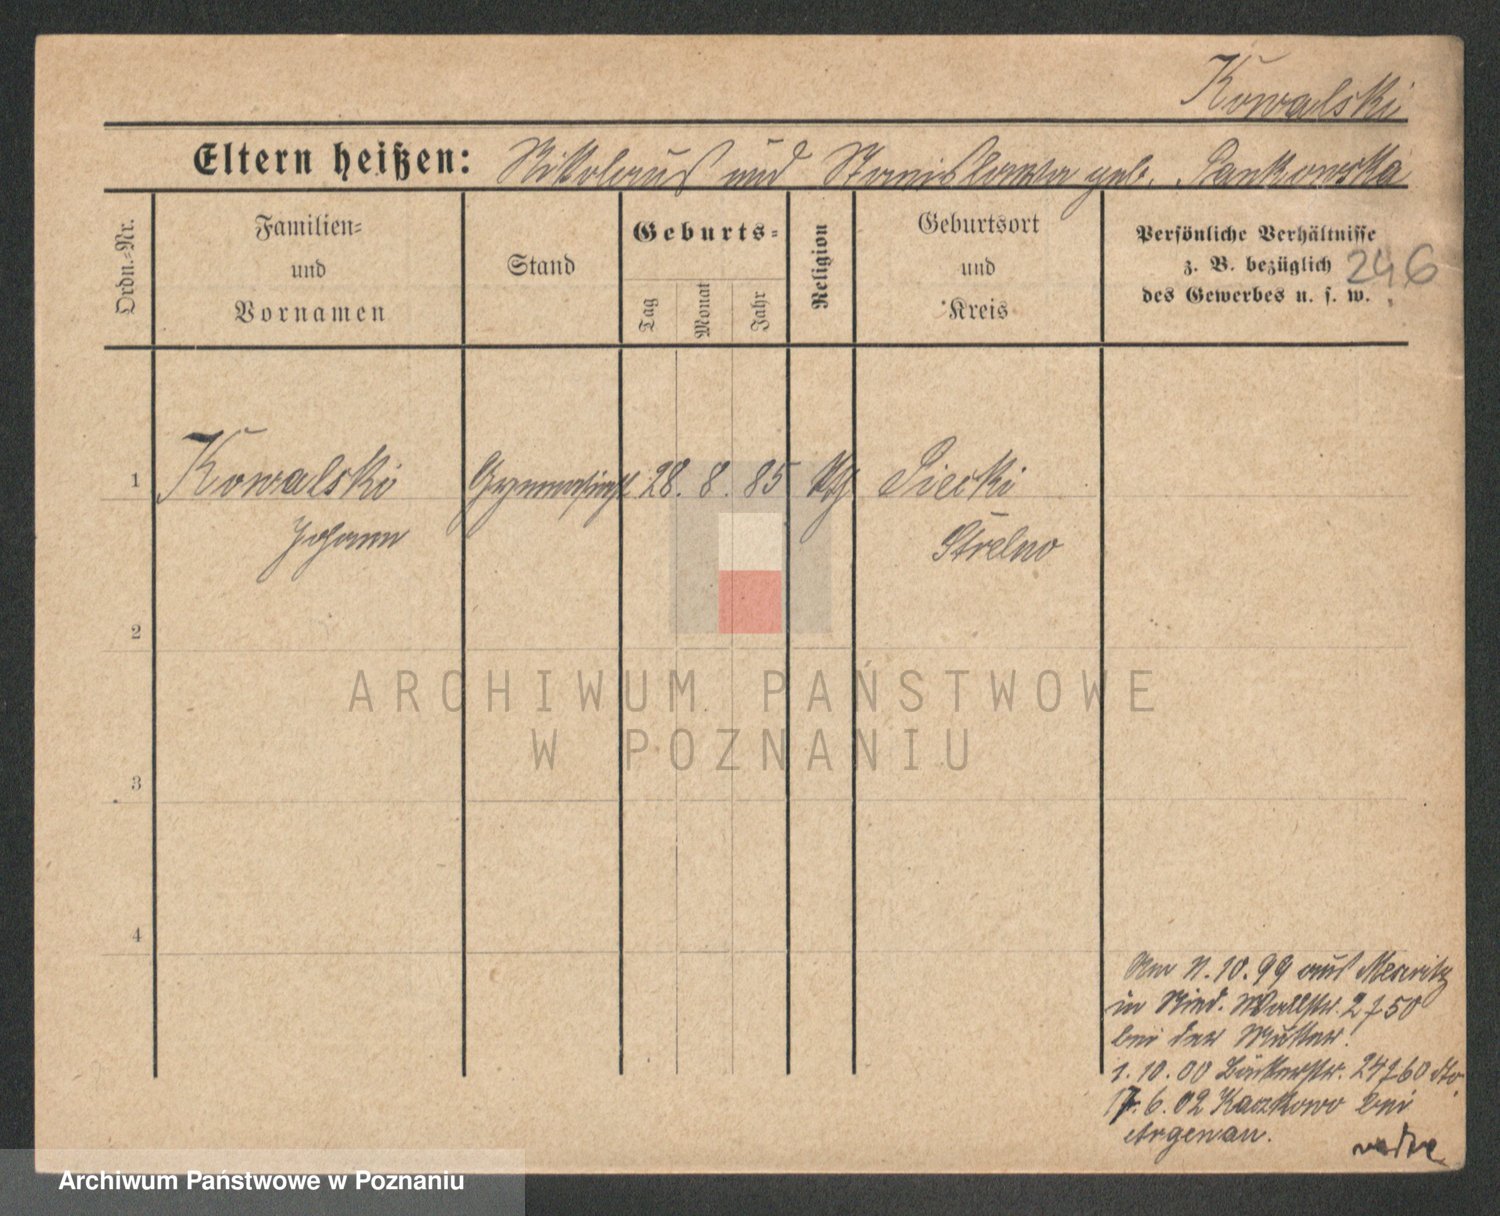 Kowalski
Eltern heißen: Nikolaus und Stanislawa geb. Pankowska
Ordn.-Nr.
Familien-
und
Vornamen
Stand
Geburts-
Tag
Monat
Jahr
Religion
Geburtsort
und
Kreis
Persönliche Verhältnisse
z. B. bezüglich
des Gewerbes u. s. w.
246
1 Kowalski Gymnasiast 28. 8. 85 kth Piecki
Johann Strelno
2
3
4
Am 11. 10. 99 aus Meseritz
in Wallstr. 2 750
bei der Mutter.
1. 10. 00 Bäckerstr. 24 760 dto.
17. 6. 02 Kaczkowo bei
Argenau.
ARCHIWUM PAŃSTWOWE
W POZNANIU
Archiwum Państwowe w Poznaniu